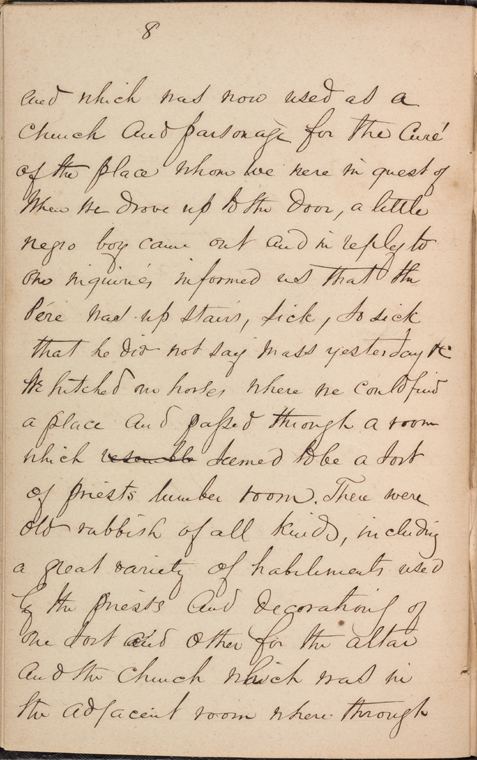 8
and which was now used as a
Church and parsonage for the Curé
of the place whom we were in quest of
When we drove up to the door, a little
negro boy came out and in reply to
our inquiries informed us that the
Pére was up stairs, sick, so sick
that he did not say mass yesterday &c
We hitched our horses where we could find
a place and passed through a room
which resemble seemed to be a sort
of priests lumber room. There were
old rubbish of all kinds, including
a great variety of habiliments used
by the priests and decorations of
one sort and other for the altar
and the church which was in
the adjacent room where through